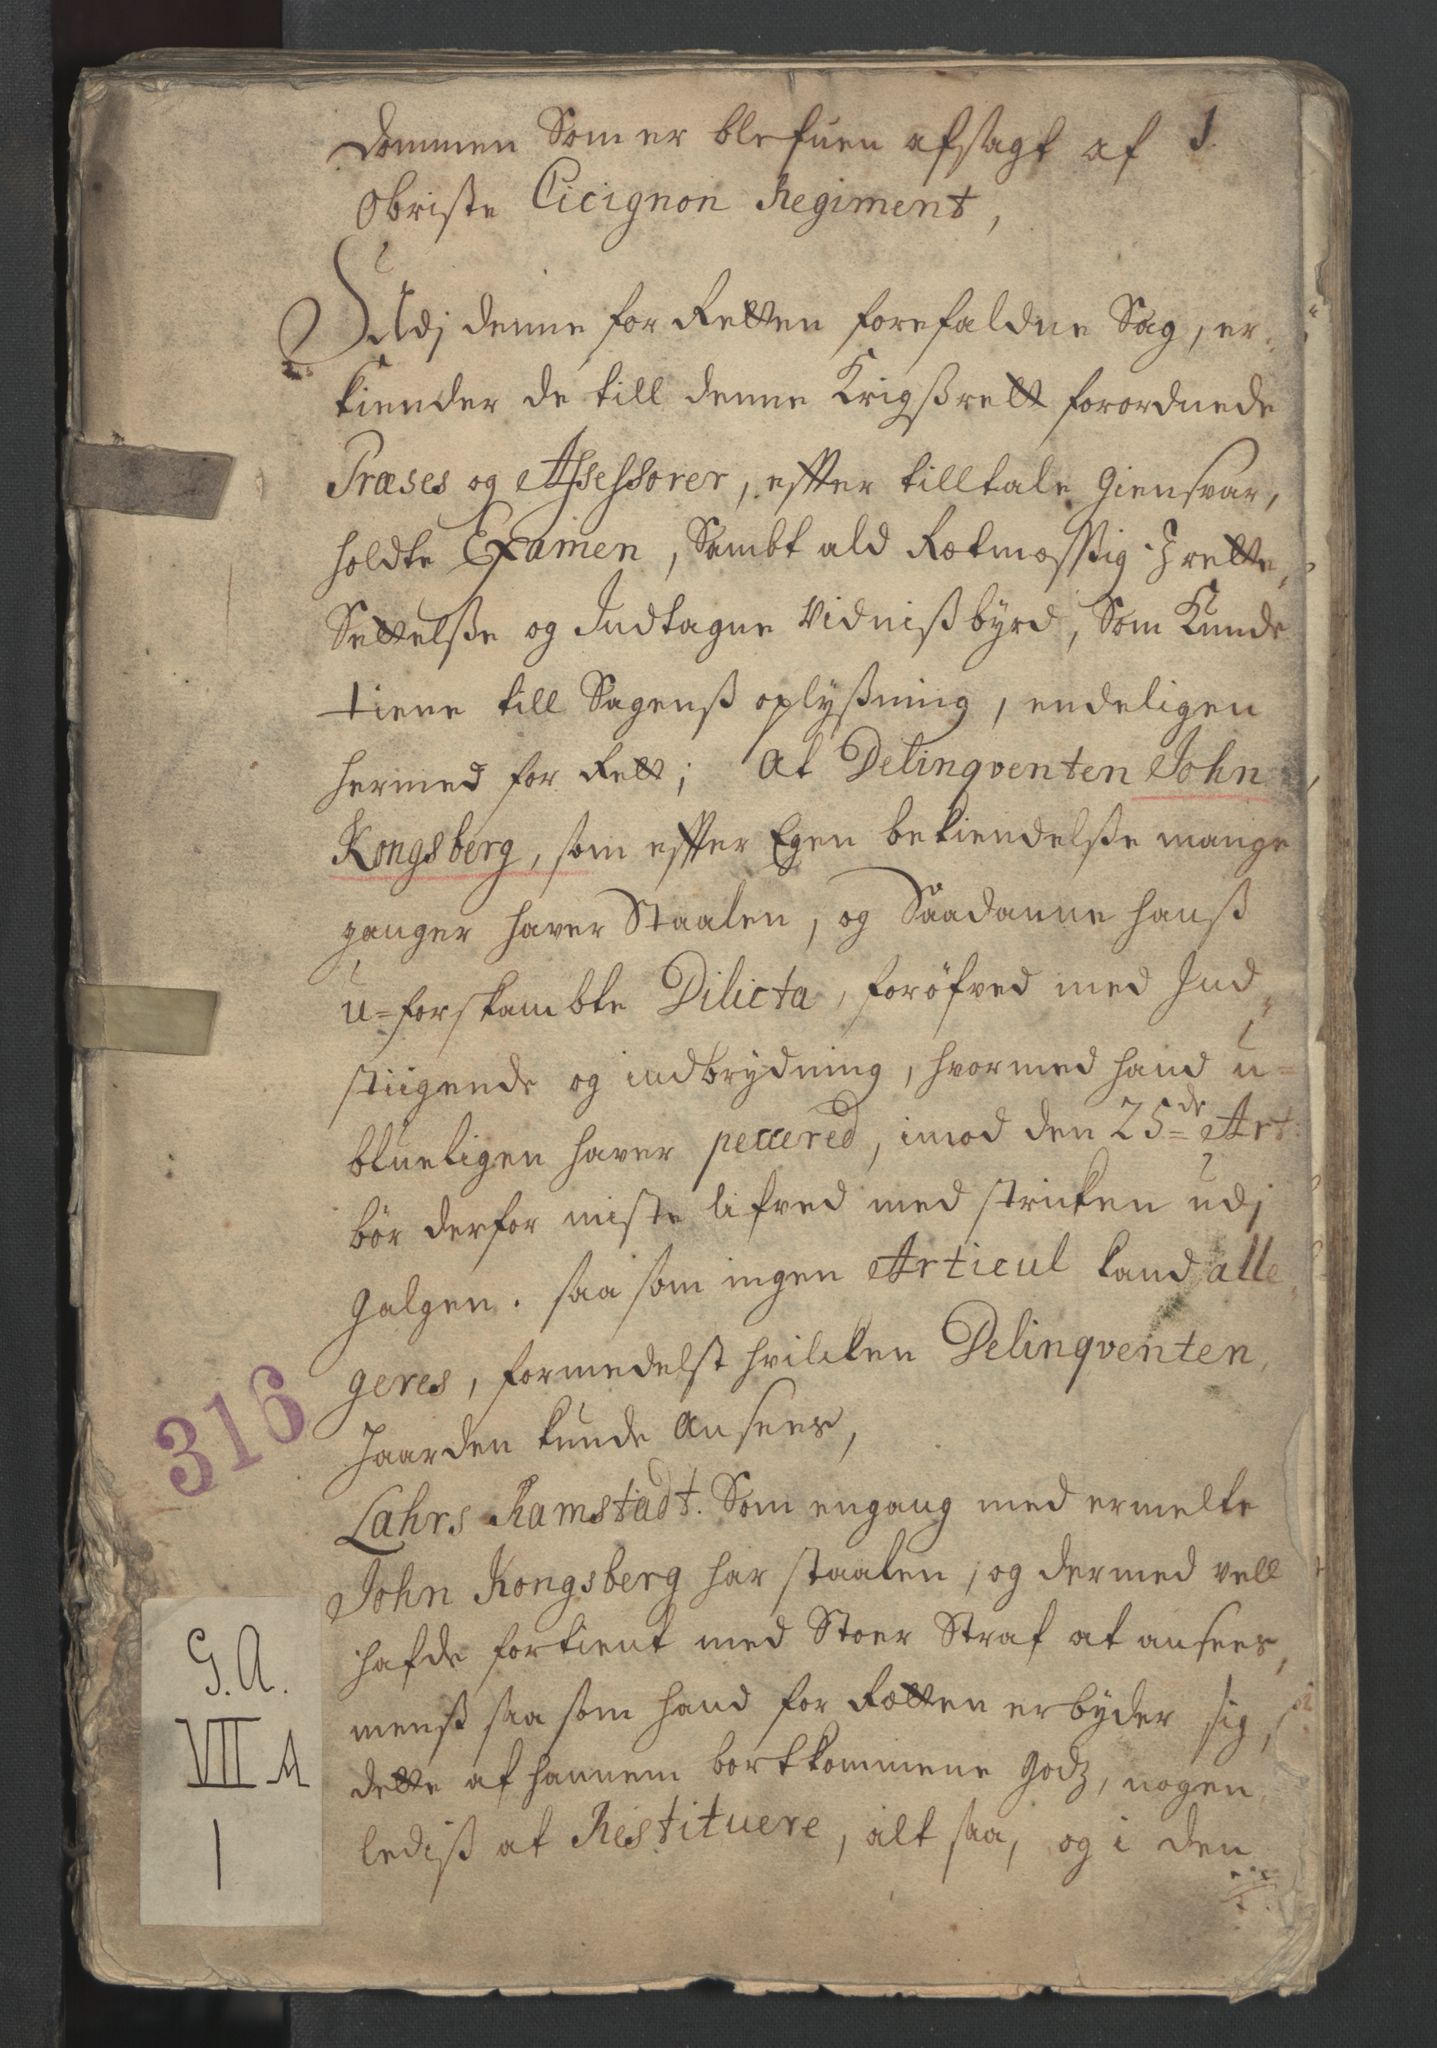 1.
Dommen Som er blefuen afsagt af
Obriste Cicignon Regiment,
Udj denne for Retten forefaldne Sag, er-
kiender de till denne Krigßrett forordnede
Præses og Assessorer, effter tilltale Giensvar,
holdte Examen, Sambt ald Retmæssig J rette,
Settelße og Indtagne Vidnißbyrd, Som Kunde
tiene till Sagenß oplyßning, endeligen
hermed for Rett; At Delinqventen John
Kongsberg, som effter Egen bekiendelße mange
ganger haver Staalen, og Saadanne hanß
u=forskambte Dilicta, forøfved med Ind-
stiigende og indbrydning, hvormed hand u=
blueligen haver peccered, imod den 25=de Art:
bør derfor miste lifved med stricken udj
Galgen. saa som ingen Articul kand alle-
geres, formedelst hvilcken Delinqventen,
Jaarden kunde Ansees,
Lahrs Ramstadt. Som engang med ermelte
John Kongsberg har staalen, og dermed vell
hafde fortient med Stoer Straf at ansees,
menß saa som hand for Retten erbyder sig,
dette af hannem bortkommene Godz, nogen-
lediß at Restituere, alt saa, og i den
316
G.A.
VII A
1